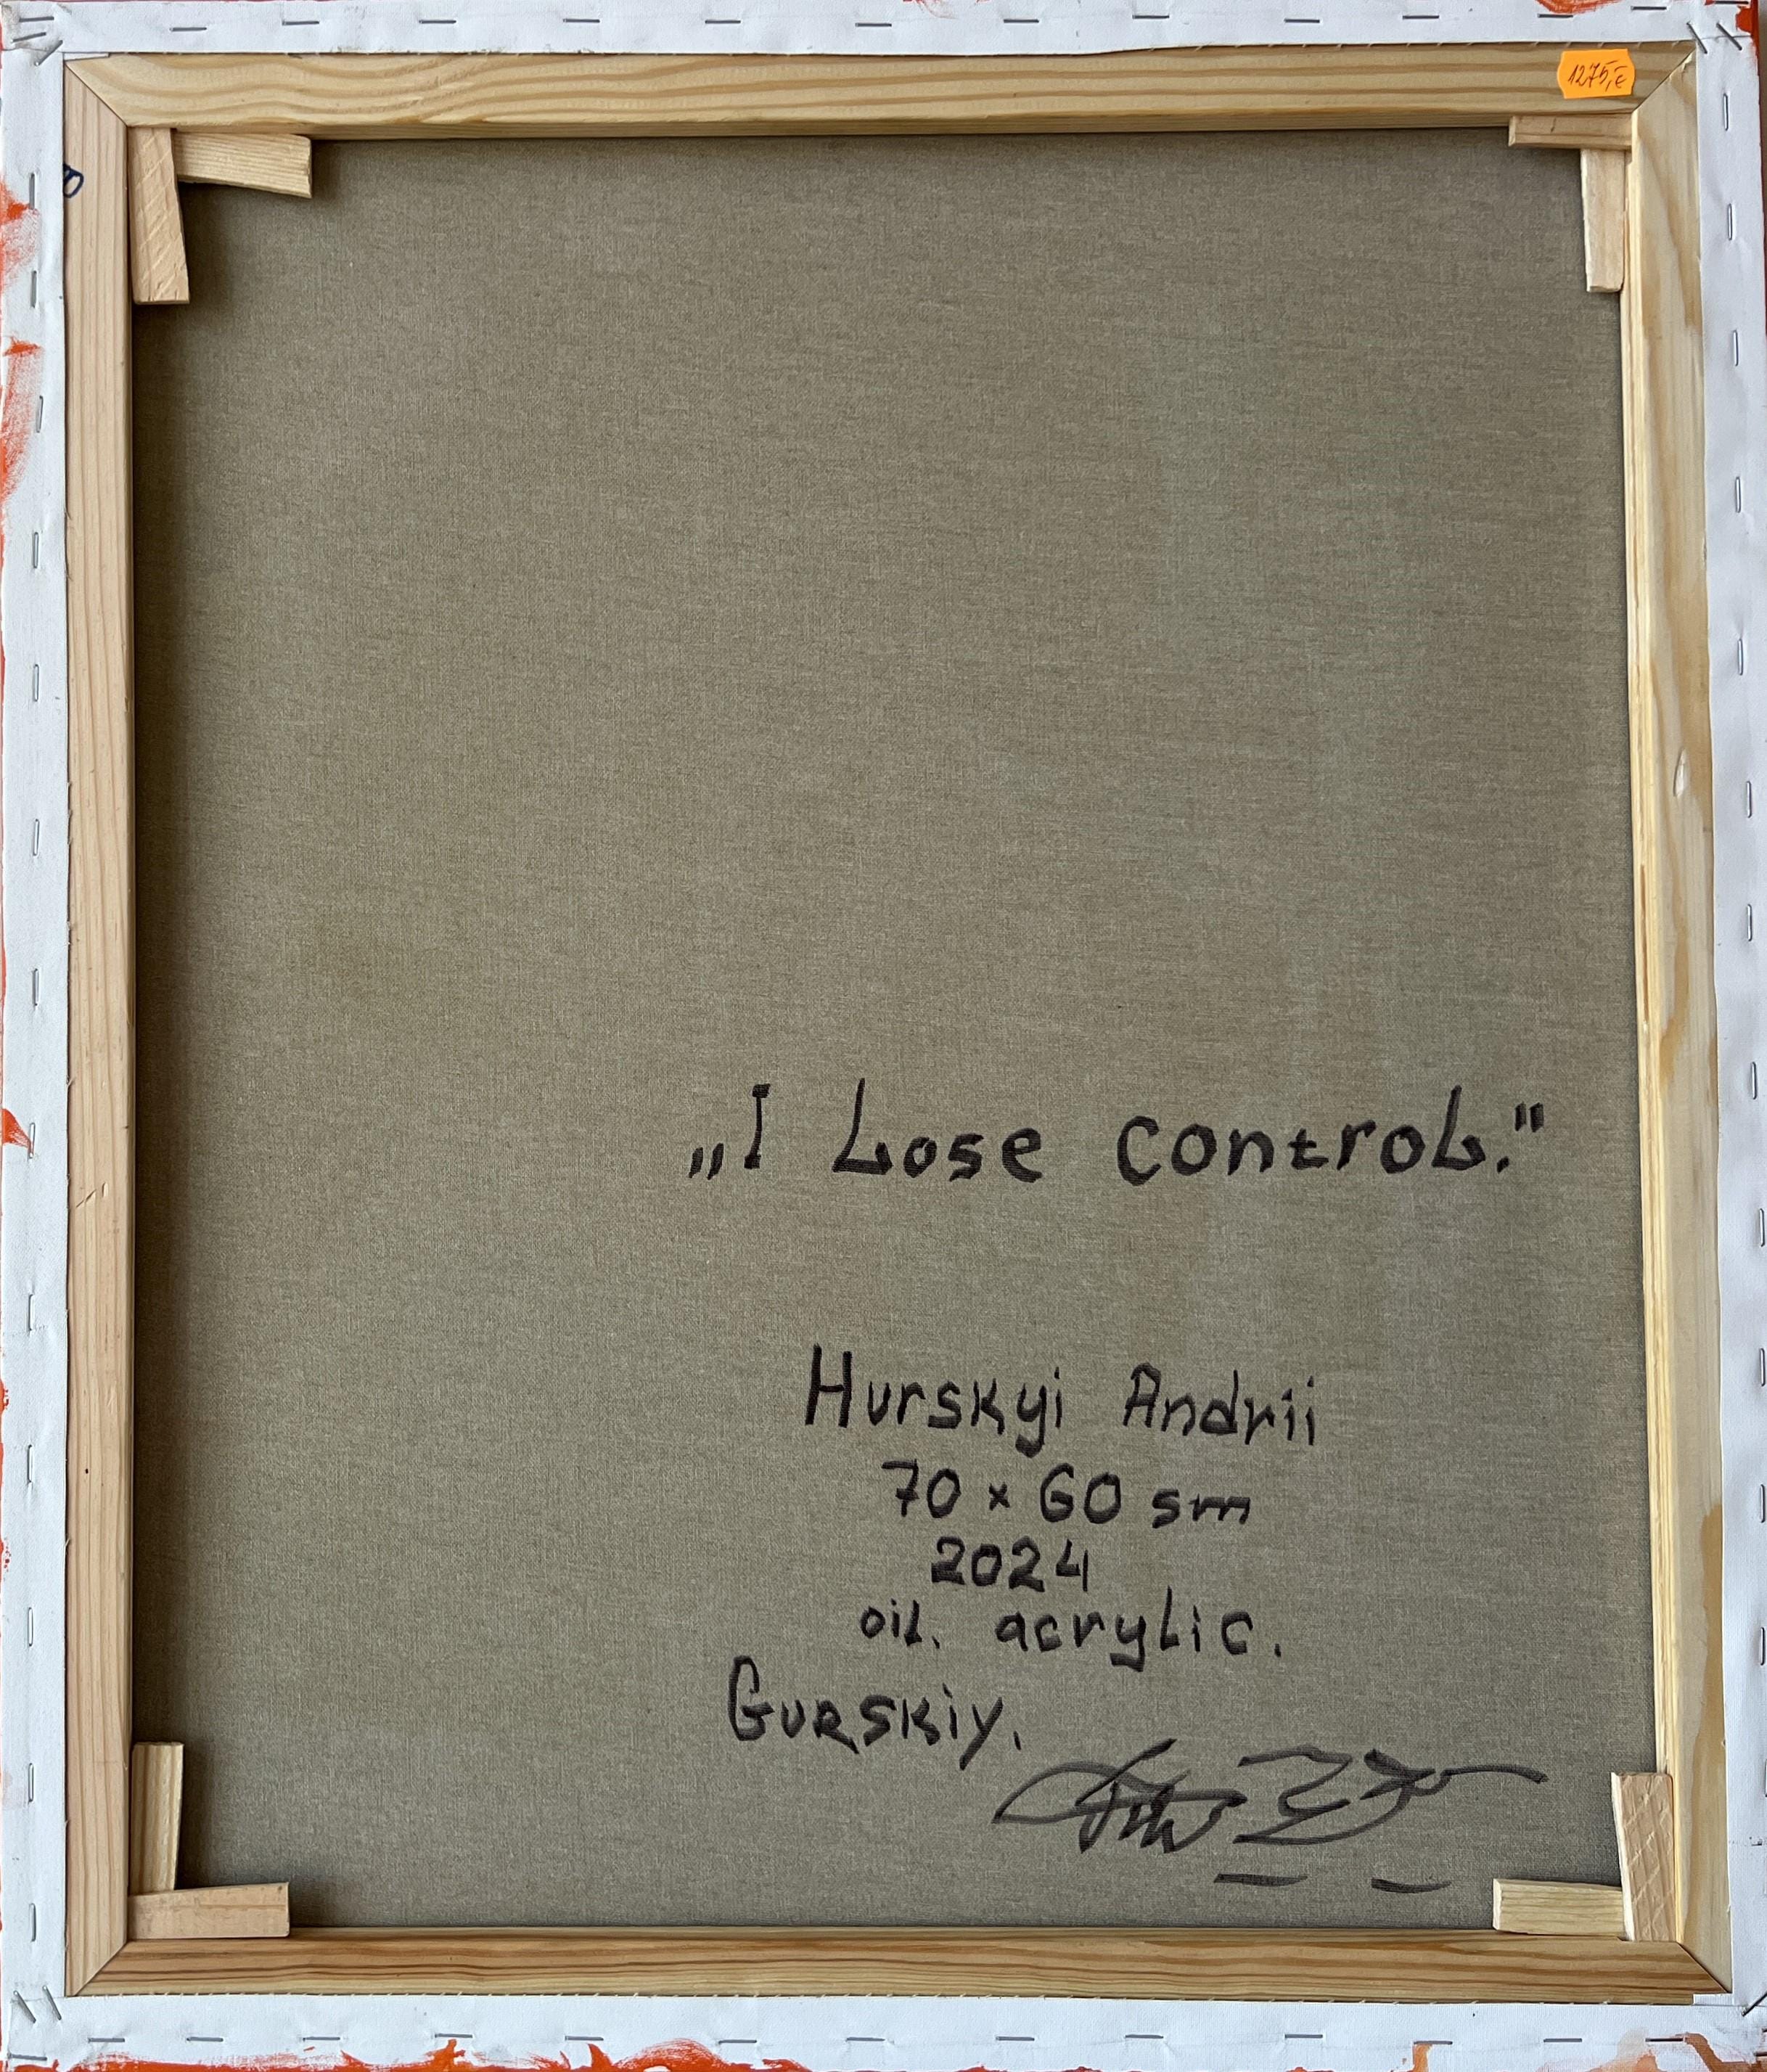 1275,-€
„I Lose control."
Hurskyi Andrii
70 × 60 sm
2024
oil. acrylic.
Gurskiy.